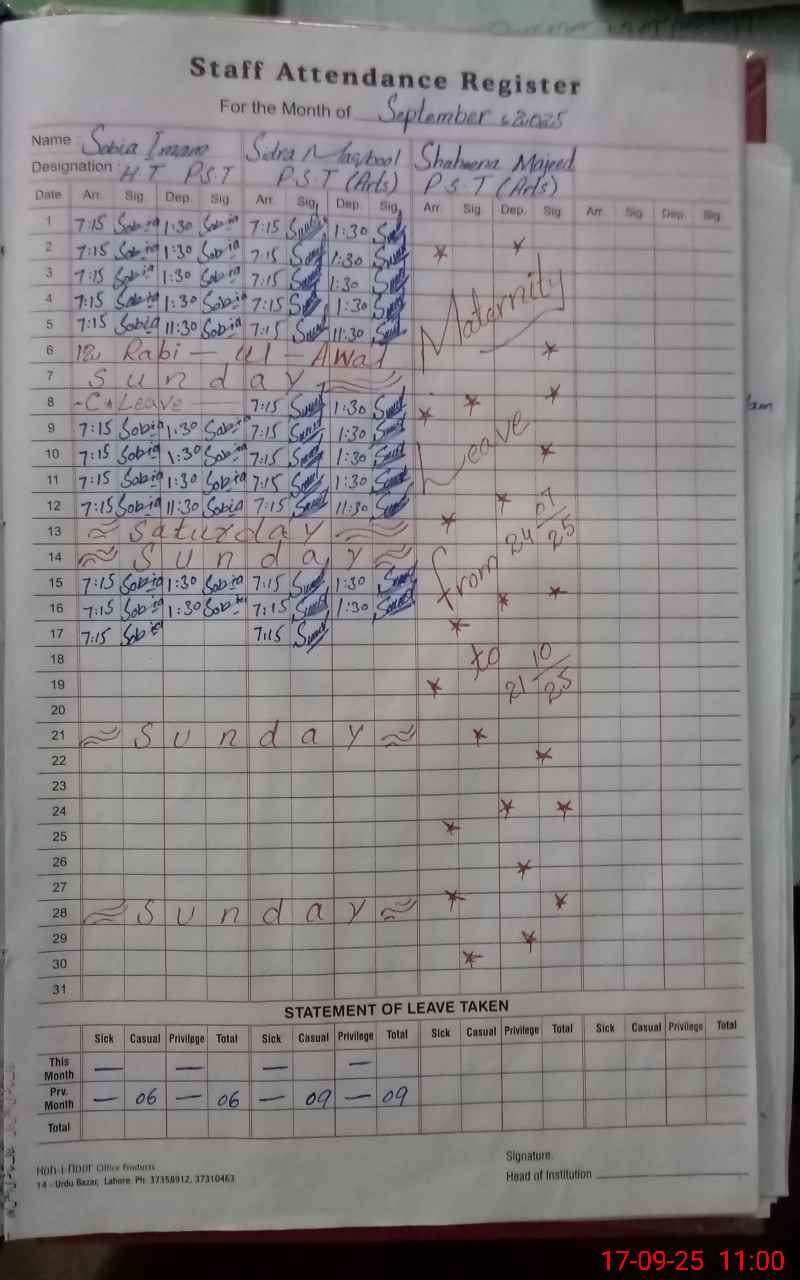 Staff Attendance Register
For the Month of September 2025
Name : Sobia Imam Sidra Maqbool Shaheena Majeed
Designation : H.T P.S.T P.S.T (Arts) P.S.T (Arts)
Date Arr. Sig. Dep. Sig. Arr. Sig. Dep. Sig. Arr. Sig. Dep. Sig. Arr. Sig. Dep. Sig.
1 7:15 Sobia 1:30 Sobia 7:15 1:30
2 7:15 Sobia 1:30 Sobia 7:15 1:30
3 7:15 Sobia 1:30 Sobia 7:15 1:30
4 7:15 Sobia 1:30 Sobia 7:15 1:30
5 7:15 Sobia 11:30 Sobia 7:15 11:30
Maternity
6 12 Rabi - ul - Awal
7 Sunday
8 -C Leave 7:15 1:30
9 7:15 Sobia 1:30 Sobia 7:15 1:30
10 7:15 Sobia 1:30 Sobia 7:15 1:30
Leave
11 7:15 Sobia 1:30 Sobia 7:15 1:30
12 7:15 Sobia 11:30 Sobia 7:15 11:30
13 Saturday
14 Sunday
from 24 07/25
15 7:15 Sobia 1:30 Sobia 7:15 1:30
16 7:15 Sobia 1:30 Sobia 7:15 1:30
17 7:15 Sobia 7:15
18
to 21 10/25
19
20
21 Sunday
22
23
24
25
26
27
28 Sunday
29
30
31
STATEMENT OF LEAVE TAKEN
Sick Casual Privilege Total Sick Casual Privilege Total Sick Casual Privilege Total Sick Casual Privilege Total
This Month — — — —
Prv. Month — 06 — 06 — 09 — 09
Total
Koh-i-noor Office Products
14 - Urdu Bazar, Lahore. Ph: 37358912, 37310463
Signature.
Head of Institution
17-09-25 11:00